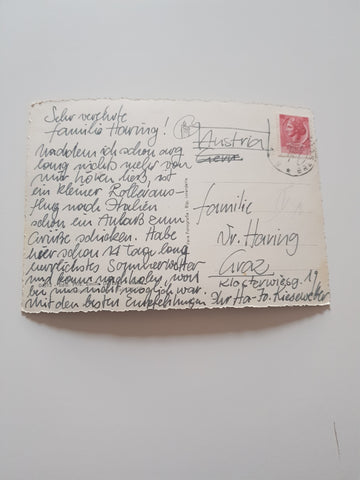 Sehr verehrte
Familie Haring!
Nachdem ich schon arg
lang nichts mehr von
mir hören ließ, ist
ein kleiner Rolleraus-
flug nach Italien
schon ein Anlass zum
Grüße schicken. Habe
hier schon 14 Tage lang
herrlichstes Sommerwetter
und kann nachholen, was
bei uns nicht möglich war.
Mit den besten Empfehlungen Ihr
Austria
Familie
Dr. Haring
Graz
Klosterwiesg. 19